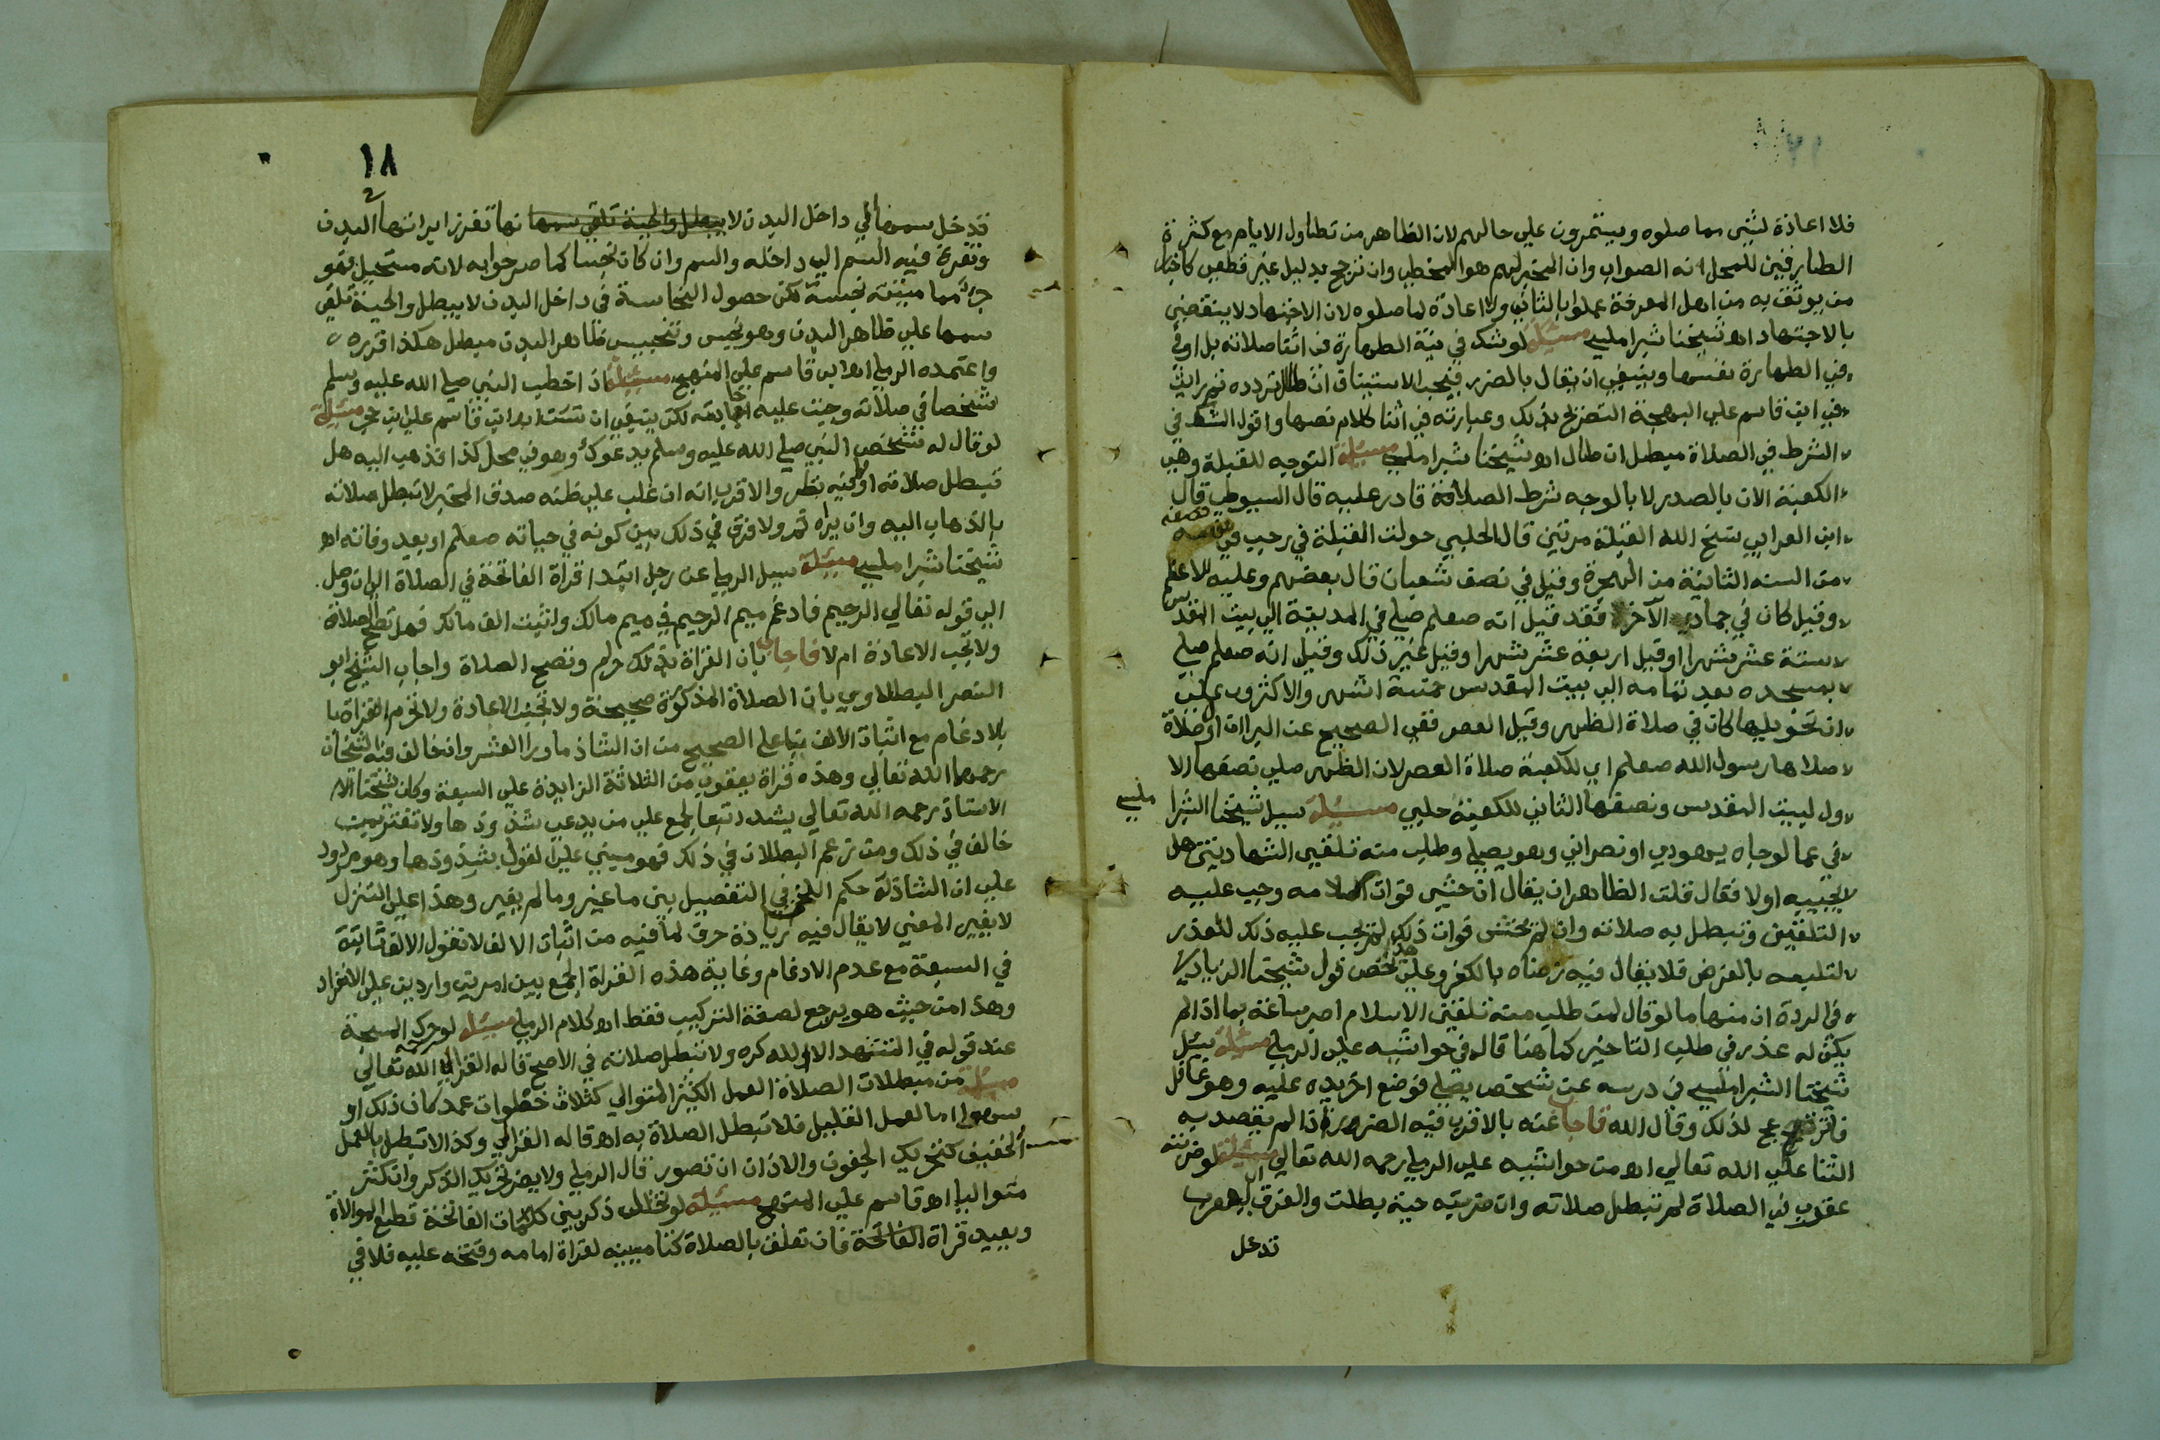 فلا اعاذة لشي مما صلوه ويستمرون علي حالهم لان الظاهر من تطاول الايام مع كثرة
الطارفين للمحل انه الصواب وان المخبر لهم هو المخطي وان ترجح بدليل غير قطعي كاخبار
من يوثق به من اهل المعرفة عملوا بالثاني ولا اعادة لما صلوه لان الاجتهاد لا ينقضي
بالاجتهاد اه شيخنا شبراملسي مسئلة لو شك في نية الطهارة في اثنا صلاته بل او في
في الطهارة نفسها وينبغي ان يقال بالضرر فيجب الاستيناف ان طال تردده ثم رايت
في ابن قاسم علي البهجة التصريح بذلك وعبارته في اثنا كلام نصها واقول الشك في
الشرط في الصلاة مبطل ان طال اه شيخنا شبراملسي مسئلة التوجه للقبلة وهي
الكعبة الان بالصدر لا بالوجه شرط الصلاة قادر عليه قال السيوطي قال
ابن العرابي نسخ الله القبلة مرتين قال الحلبي حولت القبلة في رجب في نصفه
من السنه الثانية من الهجرة وقيل في نصف شعبان قال بعضهم وعليه الاعظم
وقيل كان في جمادي الآخر فقد قيل انه صعلم صلي في المدينة الي بيت المقدس
ستة عشر شهرا وقيل اربعة عشر شهرا وقيل غير ذلك وقيل انه صعلم صلي
بمسجده بعد تمامه الي بيت المقدس خمسة اشهر والاكثرون علي
ان تحويلها كان في صلاة الظهر وقيل العصر ففي الصحيح عن البرا ان اول صلاة
صلاها رسول الله صعلم اي للكعبة صلاة العصر لان الظهر صلي نصفها الا
ول لبيت المقدس ونصفها الثاني للكعبة حلبي مسئلة سيل شيخنا الشبرا ملسي
في عما لو جاه يهودي او نصراني وهو يصلي وطلب منه تلقين الشهادتين هل
يجيبه اولا فقال قلت الظاهر ان يقال ان خشي فوات اسلامه وجب عليه
التلقين وتبطل به صلاته وان لم يخش فوات ذلك لم يجب عليه ذلك للعذر
لتلبسه بالفرض فلا يقال فيه رضاه بالكفر وعلي هذا يخص قول شيخنا الزيادي
في الردة ان منها ما لو قال لمن طلب منه تلقين الاسلام اصبر ساعة بما اذا لم
يكن له عذر في طلب التاخير كما هنا قاله في حواشيه علي الرملي مسئلة سئل
شيخنا الشبراملسي في درسه عن شخص يصلي فوضع اخر يده عليه وهو غافل
فانزعج لذلك وقال الله فاجاب عنه بالاقرب فيه الضرر اذا لم يقصد به
الثنا علي الله تعالي اه من حواشيه علي الرملي رحمه الله تعالي مسئلة لو ضربته
عقرب في الصلاة لم تبطل صلاته وان ضربته حية بطلت والفرق
تدخل
١٨
تدخل سمها في داخل البدن لا يبطل والحية تلقي سمها نها تغرز ابرتها البدن
وتفرغ فيه السم الي داخله والسم وان كان نجسا كما صرحوا به لانه مستحيل فهو
جزء مما ميتته نجسة لكن حصول النجاسة في داخل البدن لا يبطل والحية تلقي
سمها علي ظاهر البدن وهو نجس وتنجيس ظاهر البدن مبطل هكذا قرره
واعتمده الرملي اه ابن قاسم علي المنهج مسئلة اذ اخطب النبي صلي الله عليه وسلم
شخصا في صلاته وجبت عليه اجابته لكن ينبغي ان اه ابن قاسم علي ابن حجر مسئلة
لو قال له شخص النبي صلي الله عليه وسلم يدعوك وهو في محل كذا فذهب اليه هل
تبطل صلاته اولا فيه نظر والاقرب انه ان غلب علي ظنه صدق المخبر لا تبطل صلاته
بالذهاب اليه وان يراه ثم ولا فرق في ذلك بين كونه في حياته صعلم او بعد وفاته اه
شيخنا شبراملسي مسئلة سيل الرملي عن رجل ابتدا قراة الفاتحة في الصلاة الي ان وصل
الي قوله تعالي الرحيم فادغم ميم الرحيم في ميم مالك واثبت الف مالك فهل تصح الصلاة
ولا تجب الاعادة ام لا فاجاب بان القراة بذلك حرام وتصح الصلاة واجاب الشيخ ابو
النصر الطبلاوي بان الصلاة المذكورة صحيحة ولا تجب الاعادة ولا تحرم القراة با
بالادغام مع اثبات الالف بنا علي الصحيح من ان الشاذ ما ورا العشر وان خالف فيه الشيخان
رحمهما الله تعالي وهذه قراة يعقوب من الثلاثة الزايدة علي السبعة وكان شيخنا الا
الاستاذ رحمه الله تعالي يشدد تبعا لجمع علي من يدعي شذوذها ولا تغتر بمن
خالف في ذلك ومن زعم البطلان في ذلك فهو مبني علي القول بشذوذها وهو مردود
علي ان الشاذ له حكم اللحن في التفصيل بين ما غير وما لم يغير وهذا علي التنزل
لا يغير المعني لا يقال فيه زيادة حرف لما فيه من اثبات الالف لانا نقول الالف ثابتة
في السبعة مع عدم الادغام وغاية هذه القراة الجمع بين امرين واردين علي الانفراد
وهذا من حيث هو يرجع لصفة التركيب فقط اه كلام الرملي مسئلة لو حرك المسبحة
عند قوله في التشهد الا الله كره ولا تبطل صلاته في الاصح قاله الغزالي رحمه الله تعالي
مسئلة من مبطلات الصلاة العمل الكثير المتوالي كثلاث خطوات عمد كان ذلك او
سهوا اما العمل القليل فلا تبطل الصلاة به اه قاله الغزالي وكذا لا تبطل بالعمل
الخفيف كتحريك الجفون والاذان ان تصور قال الرملي ولا يضر تحريك الذكر وان كثر
متواليا اه قاسم علي المنهج مسئلة لو تخلل ذكر بين كلمات الفاتحة قطع الموالاة
ويعيد قراة الفاتحة فان تعلق بالصلاة كتامينه لقراة امامه وفتحه عليه فلا في